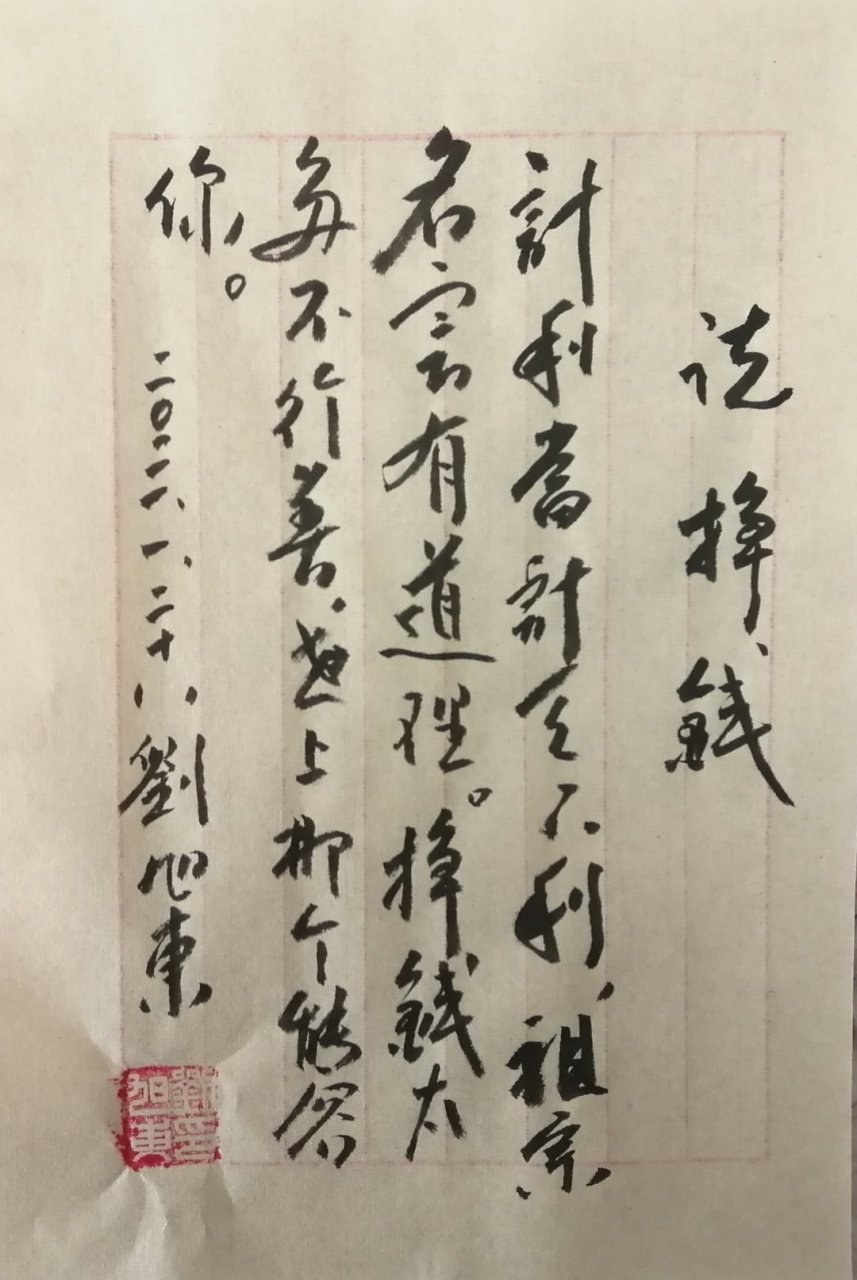 说掙錢
計利當計天下利,祖宗
名有道理。掙錢太
多不行善,世上哪个能容
你。
二〇二二、一、二十八 劉旭東
劉旭東印